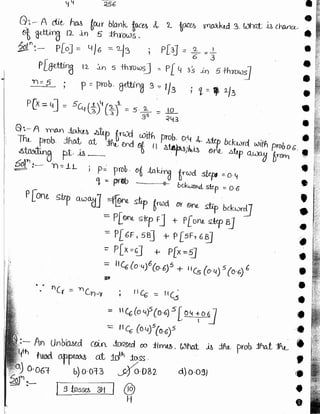 4⁴ 256
Q:- A die has four blank faces & 2 faces marked 3. What is chance
of getting 12 in 5 throws.
Solⁿ:- P[0] = 4/6 = 2/3 ; P[3] = 2/6 = 1/3
P[getting 12 in 5 throws] = P[4 3's in 5 throws]
n=5 ; p = prob. getting 3 = 1/3 ; q = 2/3
P[X=4] = ⁵C₄(1/3)⁴(2/3)¹ = 5 2/3⁵ = 10/243
Q:- A man takes step frwd with prob. 0.4 & step bckward with prob 0.6.
The prob that at the end of 11 steps, he is one step away from
starting pt is
Solⁿ:- n=11 ; p = prob of taking frwd step = 0.4
q = prob bckward step = 0.6
P[one step away] = P[one step frwd or one step bckward]
= P[one step F] + P[one step B]
= P[6F, 5B] + P[5F, 6B]
= P[X=6] + P[X=5]
= ¹¹C₆(0.4)⁶(0.6)⁵ + ¹¹C₅(0.4)⁵(0.6)⁶
∵ ⁿCᵣ = ⁿCₙ₋ᵣ ; ¹¹C₆ = ¹¹C₅
= ¹¹C₆(0.4)⁵(0.6)⁵[0.4+0.6]
= ¹¹C₆ (0.4)⁵(0.6)⁵
:- An Unbiased coin tossed ∞ times. What is the prob that the
4th head appears at 10th toss.
a) 0.067 b) 0.073 c) 0.082 d) 0.091
Solⁿ:-
9 tosses 3H 10
H